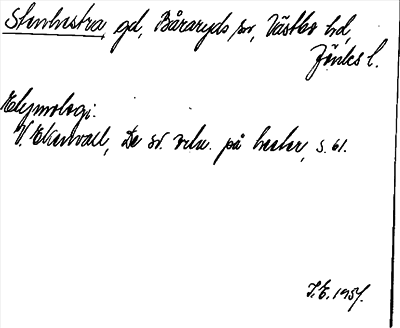 Stenhestra, gd, Båraryds sn, Västbo hd,
Jönk. l.
Etymologi:
V. Ekenvall, De sv. ortn. på hester, s. 61.
I.E. 1957.